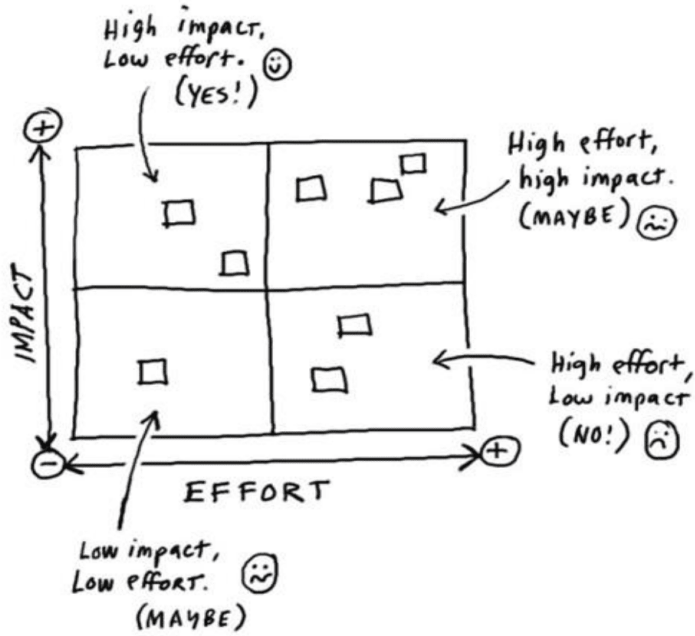 High impact,
Low effort.
(YES!)
High effort,
high impact.
(MAYBE)
IMPACT
High effort,
Low impact
(NO!)
EFFORT
Low impact,
Low effort.
(MAYBE)
+
+
−